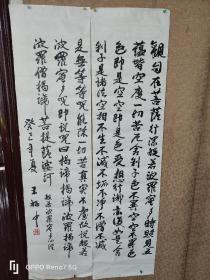 觀自在菩薩行深般若波羅蜜多時照見五
蘊皆空度一切苦厄舍利子色不異空空不異色
色即是空空即是色受想行識亦復如是舍
利子是諸法空相不生不滅不垢不淨不增不減
是無等等咒能除一切苦真實不虛故說般若
波羅蜜多咒即說咒曰揭諦揭諦波羅揭諦
波羅僧揭諦菩提薩婆訶
般若波羅蜜多心經
癸巳年夏
OPPO Reno7 5G